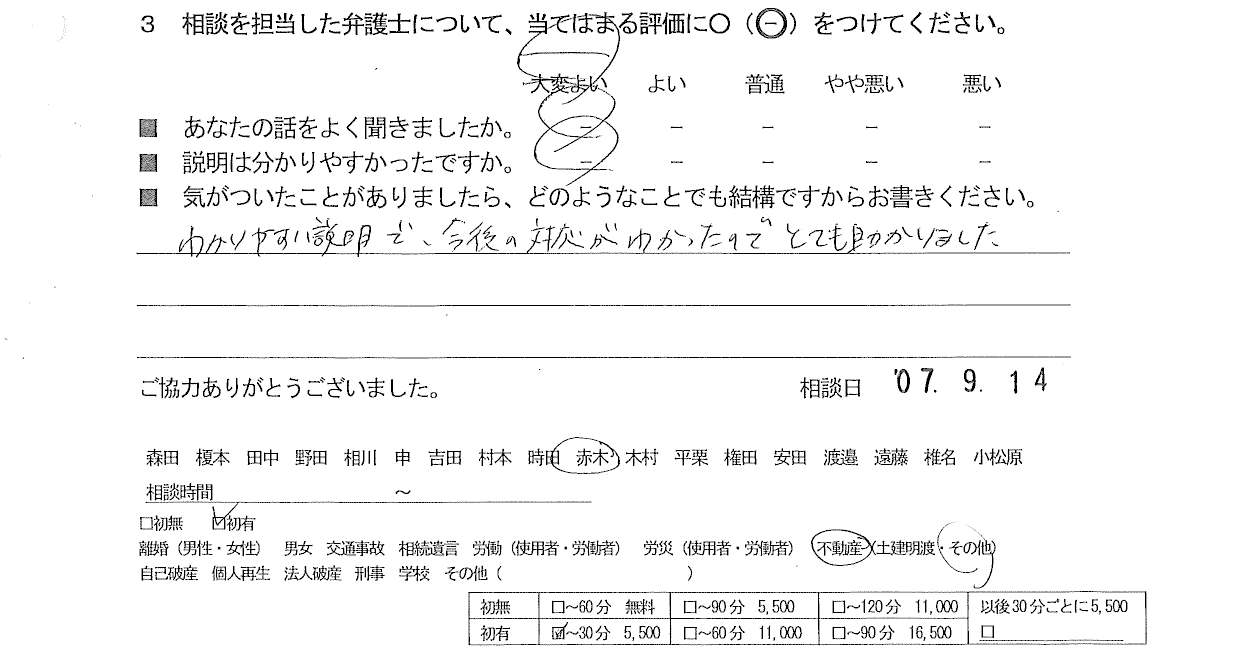 3 相談を担当した弁護士について、当てはまる評価に〇（㊀）をつけてください。
大変よい よい 普通 やや悪い 悪い
■ あなたの話をよく聞きましたか。 － － － － －
■ 説明は分かりやすかったですか。 － － － － －
■ 気がついたことがありましたら、どのようなことでも結構ですからお書きください。
わかりやすい説明で、今後の対応がわかったのでとても助かりました
ご協力ありがとうございました。 相談日 '07. 9. 14
森田 榎本 田中 野田 相川 申 吉田 村本 時田 赤木 木村 平栗 権田 安田 渡邉 遠藤 椎名 小松原
相談時間 ～
□初無 ☑初有
離婚（男性・女性） 男女 交通事故 相続遺言 労働（使用者・労働者） 労災（使用者・労働者） 不動産（土建明渡・その他）
自己破産 個人再生 法人破産 刑事 学校 その他（ ）
初無 □～60分 無料 □～90分 5,500 □～120分 11,000 以後30分ごとに5,500
初有 ☑～30分 5,500 □～60分 11,000 □～90分 16,500 □